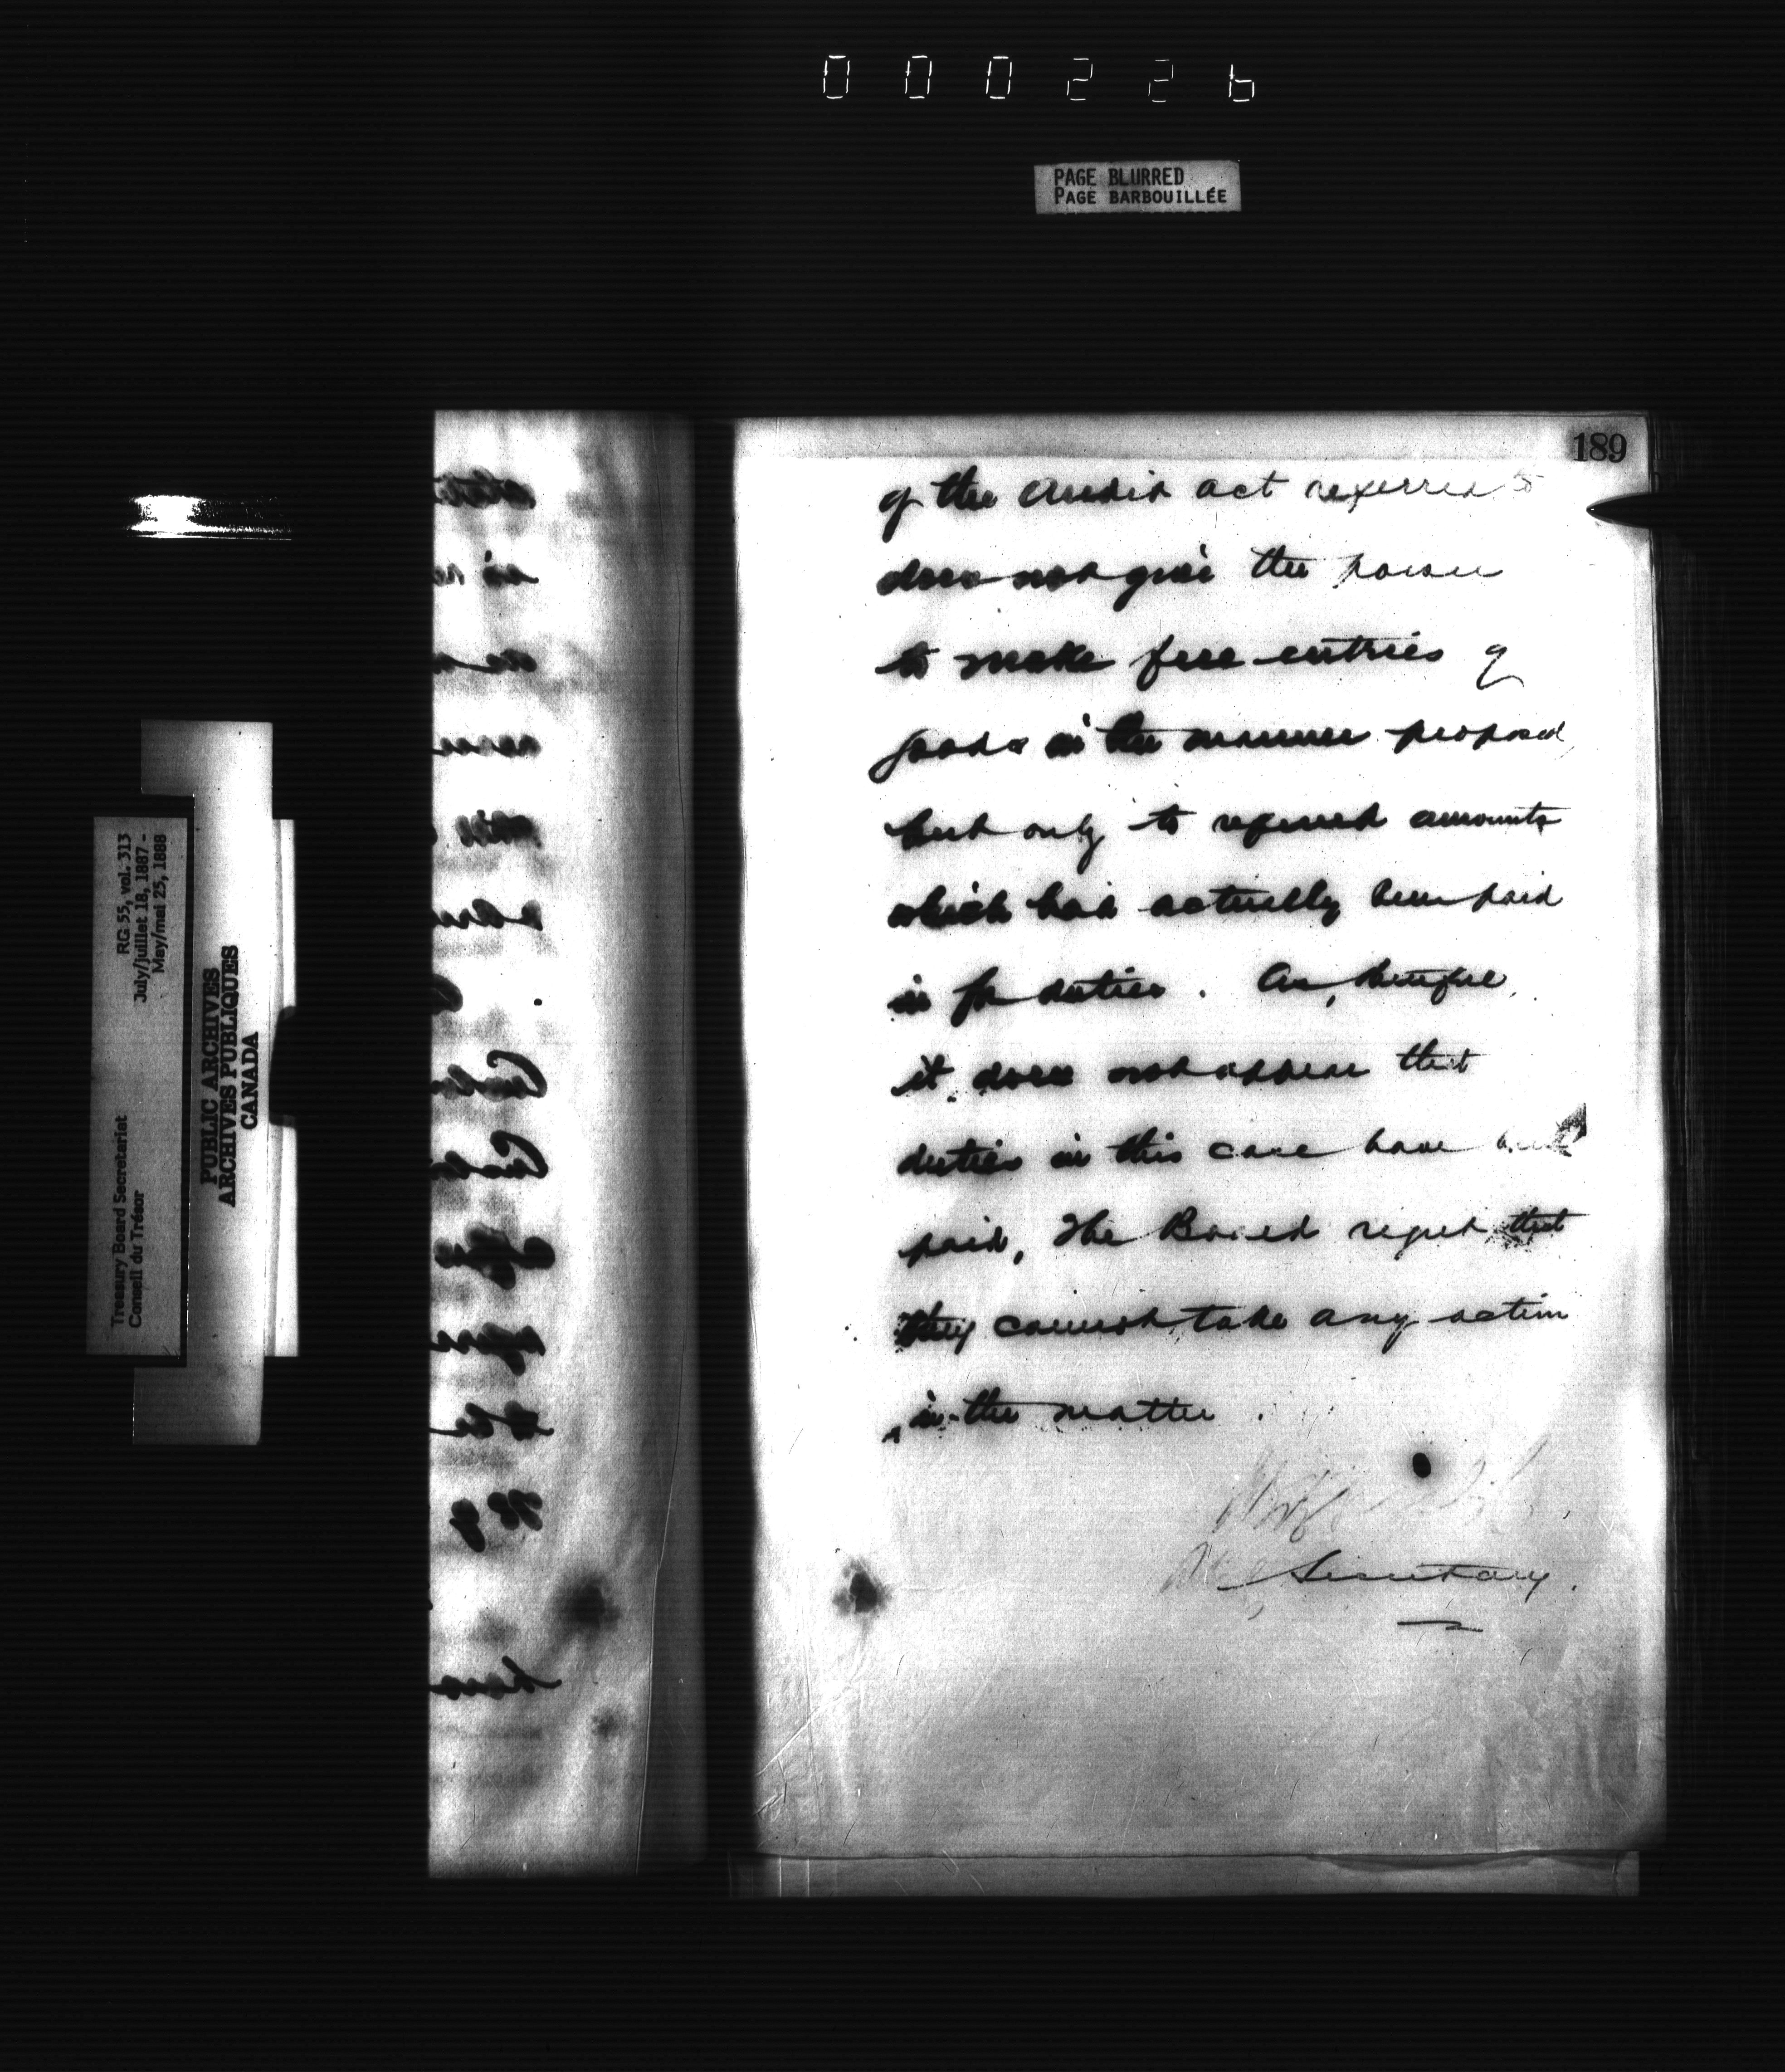 000226
PAGE BLURRED
PAGE BARBOUILLÉE
RG 55, vol. 313
July/juillet 18, 1887 -
May/mai 25, 1888
Treasury Board Secretariat
Conseil du Trésor
PUBLIC ARCHIVES
ARCHIVES PUBLIQUES
CANADA
189
of the Audit act referred to
does not give the power
to make free entries of
goods in the manner proposed
but only to refund amounts
which had actually been paid
in for duties. As, therefore,
it does not appear that
duties in this case have been
paid, the Board regret that
they cannot take any action
in the matter.
Secretary.